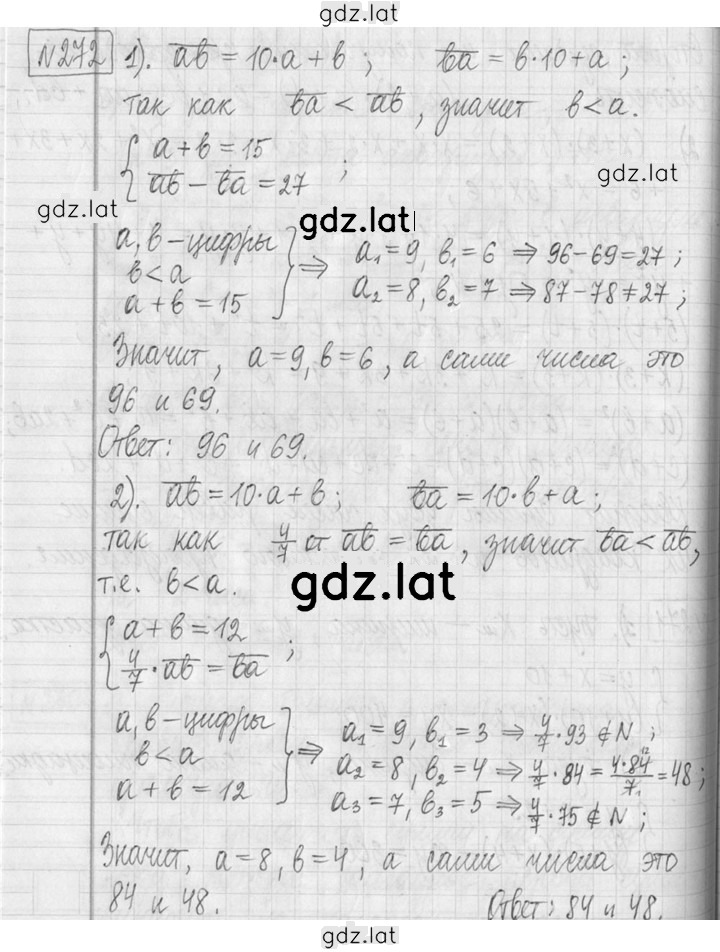 gdz.lat
№272 1). ab = 10·a + b ; ba = b·10 + a ;
так как ba < ab , значит b < a.
{ a + b = 15
ab − ba = 27 ;
gdz.lat
gdz.lat
gdz.lat
a, b – цифры
b < a
a + b = 15
} ⇒ a₁ = 9, b₁ = 6 ⇒ 96 − 69 = 27 ;
a₂ = 8, b₂ = 7 ⇒ 87 − 78 ≠ 27 ;
Значит, a = 9, b = 6 , а сами числа это
96 и 69.
Ответ: 96 и 69.
2). ab = 10·a + b ; ba = 10·b + a ;
так как 4/7 от ab = ba , значит ba < ab,
т.е. b < a.
gdz.lat
{ a + b = 12
4/7 · ab = ba ;
a, b – цифры
b < a
a + b = 12
} ⇒ a₁ = 9, b₁ = 3 ⇒ 4/7 · 93 ∉ N ;
a₂ = 8, b₂ = 4 ⇒ 4/7 · 84 = 4·84¹²/7₁ = 48 ;
a₃ = 7, b₃ = 5 ⇒ 4/7 · 75 ∉ N ;
gdz.lat
gdz.lat
Значит, a = 8, b = 4, а сами числа это
84 и 48.
Ответ: 84 и 48.
gdz.lat